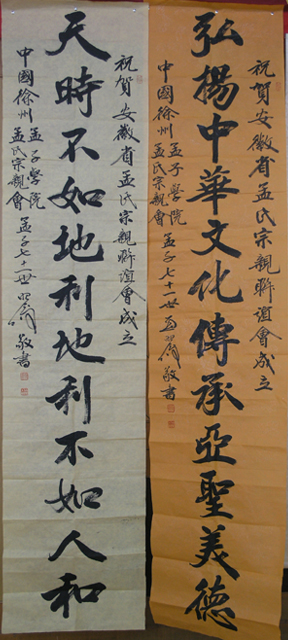 祝賀安徽省孟氏宗親聯誼會成立
弘揚中華文化傳承亞聖美德
中國徐州孟子學院
孟氏宗親會
孟子七十一世
敬書
祝賀安徽省孟氏宗親聯誼會成立
天時不如地利地利不如人和
中國徐州孟子學院
孟氏宗親會
孟子七十一世
敬書